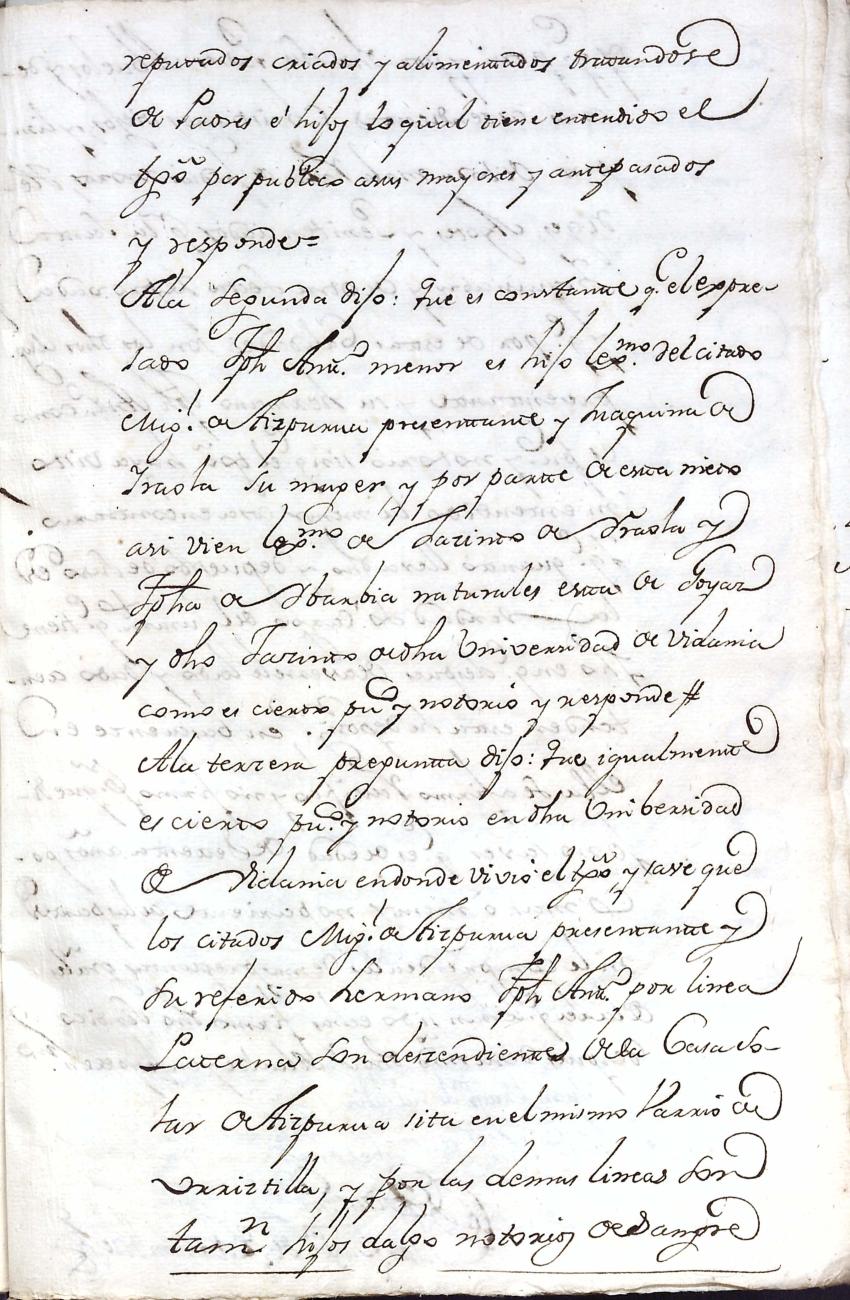 reputados criados y alimentados tratandose
de Padres é hijos lo qual tiene entendido el
tgõ por publico asus mayores y antepasados
y responde=
Ala segunda dijo: que es constante q.e el expre-
sado Jph Ant.o menor es hijo lex.mo del citado
Mig.l de Aizpurua presentante y Juaquina de
Iraola su muger, y por parte de esta nieto
asi vien lex.mo de Jazinto de Iraola y
Jpha de Ybarbia naturales esta de Goyaz
y dho Jazinto de dha Universidad de Vidania
como es cierto pu.co y notorio y responde #
Ala terzera pregunta dijo: que igualmente
es cierto pu.co y notorio en dha Unibersidad
de Vidania endonde vivió el tgõ y save que
los citados Mig.l de Aizpurua presentante y
su referido hermano Jph Ant.o por linea
Paterna son descendientes de la Casa So-
lar de Aizpurua sita en el mismo Varrio de
Urriztilla, y por las demas lineas son
tamn hijos dalgo notorios de Sangre